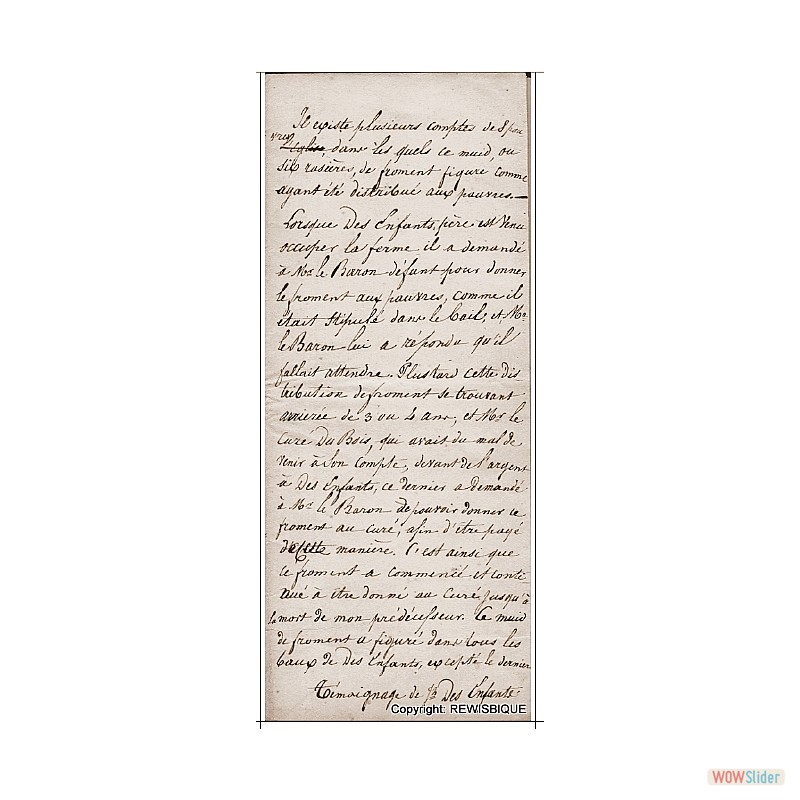 Il existe plusieurs comptes de
vres
l'Eglise, dans les quels ce muid, ou
six rasières, de froment figure comme
ayant été distribué aux pauvres.—
Lorsque Des Enfants, père est venu
occuper la ferme il a demandé
à Mr. le Baron défunt pour donner
le froment aux pauvres, comme il
était stipulé dans le bail; et Mr.
le Baron lui a répondu qu'il
fallait attendre. Plustard cette dis-
tribution de froment se trouvant
arrierée de 3 ou 4 ans; et Mr le
Curé Du Bois, qui avait du mal de
venir à son compte, devant de l'argent
à Des Enfants, ce dernier a demandé
à Mr le Baron de pouvoir donner ce
froment au curé, afin d'être payé
de cette manière. C'est ainsi que
ce froment a commencé et conti
nué à être donné au Curé, jusqu'à
la mort de mon prédécesseur. Ce muid
de froment a figuré dans tous les
baux de Des Enfants, excepté le dernier
Témoignage de Des Enfants
Copyright: REWISBIQUE
WOWSlider